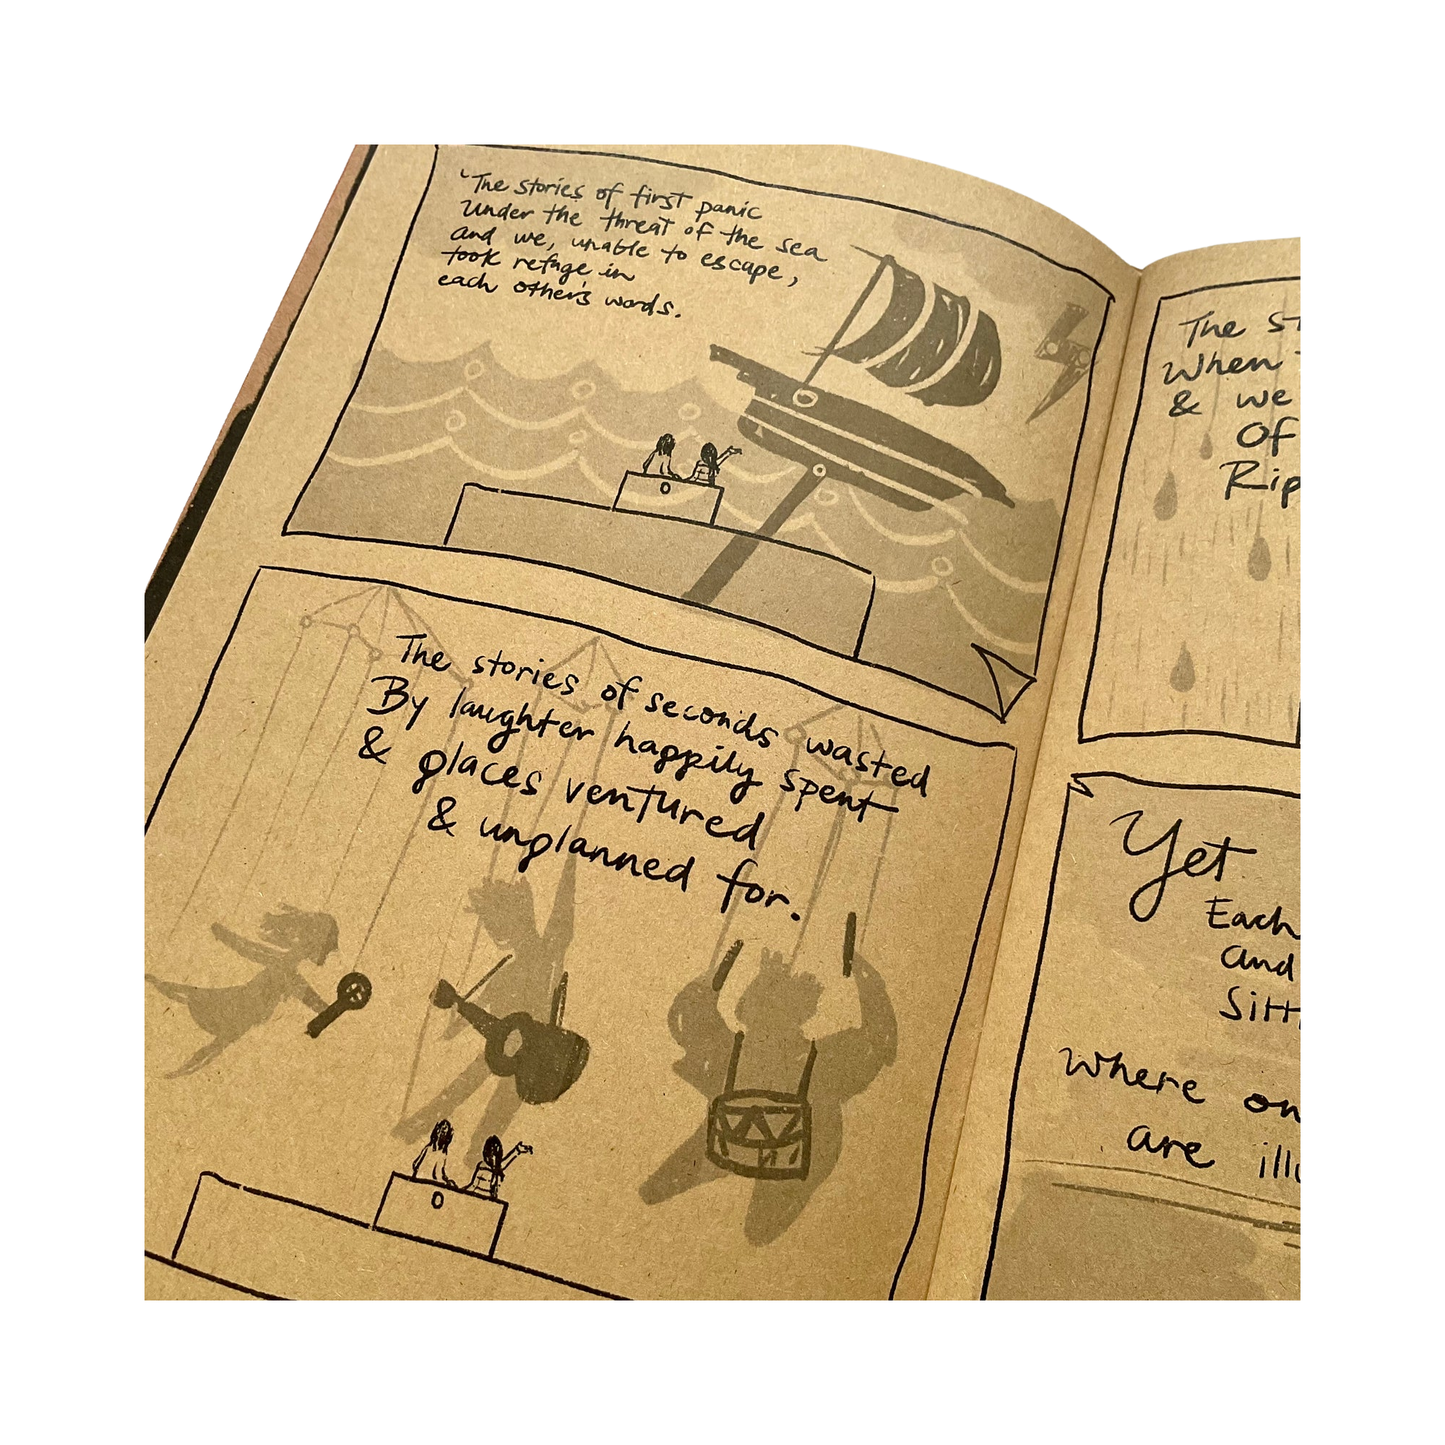 'The stories of first panic
Under the threat of the sea
and we, unable to escape,
took refuge in
each other's words.
The stories of seconds wasted
By laughter happily spent
& places ventured
& unplanned for.
The
When
& we
Of
Yet
Each
and
Where
are